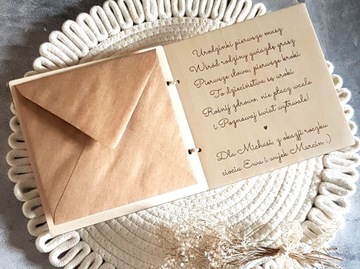 Urodzinki pierwsze masz
Wśród rodziny gwiazdę grasz
Pierwsze słowa, pierwsze kroki
To dzieciństwa są uroki
Rośnij zdrowo, nie płacz wcale
i Poznawaj świat wytrwale!
Dla Michasi z okazji roczku
ciocia Ewa i wujek Marcin :)